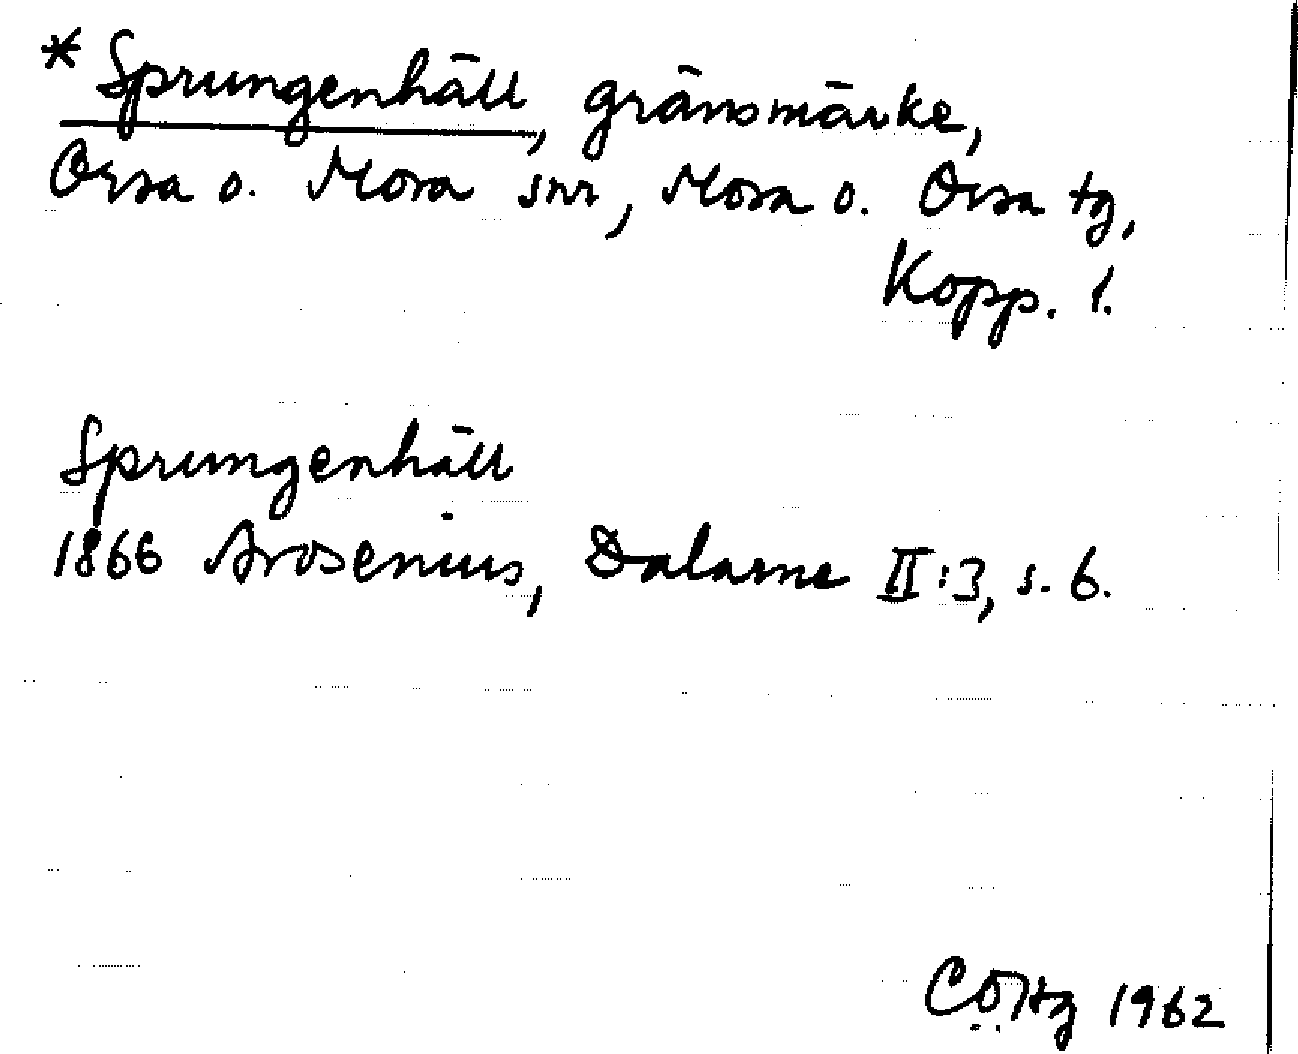 * Sprungenhäll, gränsmärke,
Orsa o. Mora snr, Mora o. Orsa tg,
Kopp. l.
Sprungenhäll
1866 Arosenius, Dalarne II:3, s. 6.
1962